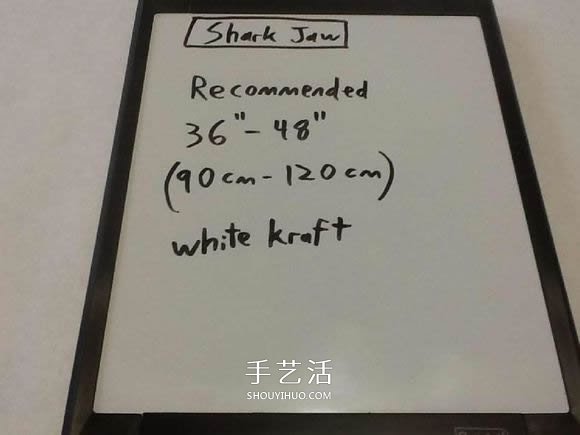 Shark Jaw
Recommended
36"-48"
(90cm-120cm)
white kraft
手艺活
SHOUYIHUO.COM